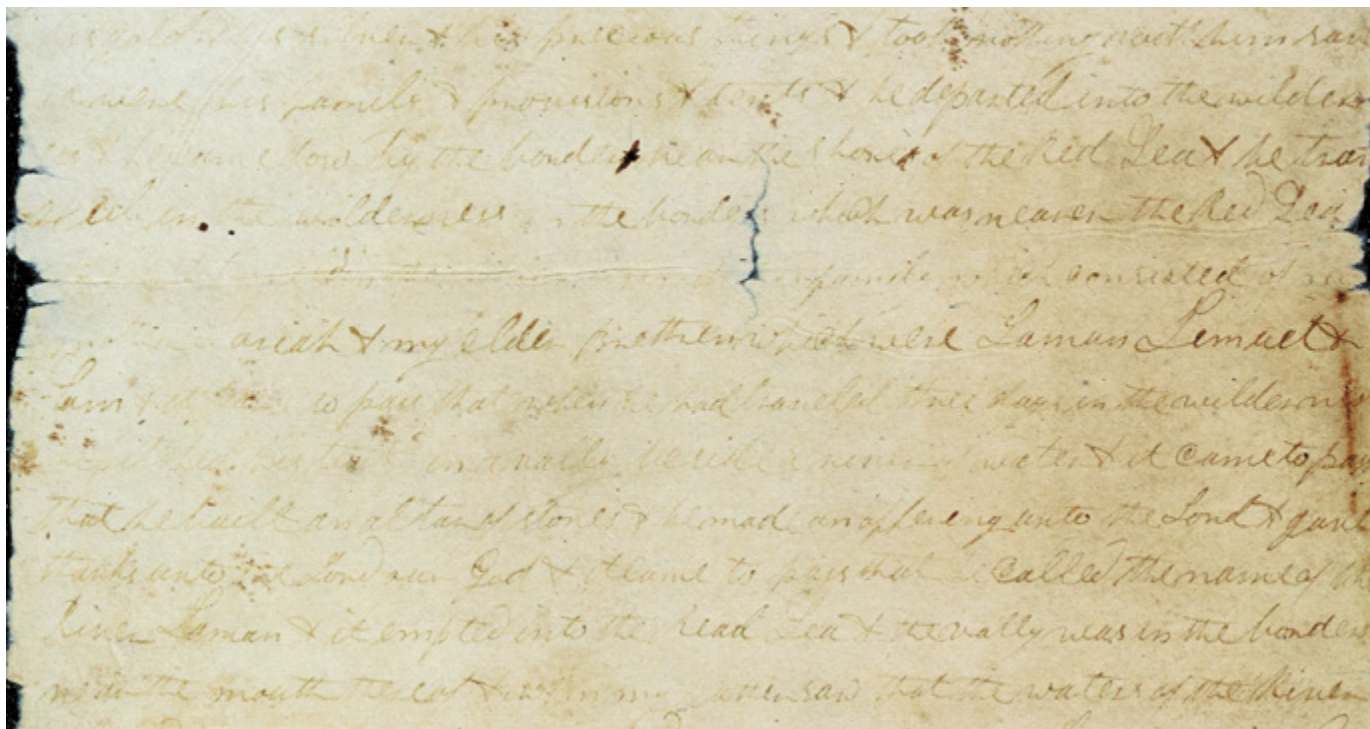 his gold & his silver & his precious things & took nothing with him save
it were his family & provisions & tents & he departed into the wilder
ess & he came down by the borders near the shore of the Red Sea & he trav
eled in the wilderness in the borders which was nearer the Red Sea
family which consisted of
ariah & my elder brethren which were Laman Lemuel &
Sam & it came to pass that when he had traveled three days in the wilderness
he pitched his tent in a vally beside a river of water & it came to pass
that he built an altar of stones & he made an offering unto the Lord & gave
thanks unto the Lord our God & it came to pass that he called the name of the
River Laman & it emptied into the Read Sea & the vally was in the borders
near the mouth thereof & when my father saw that the waters of the River